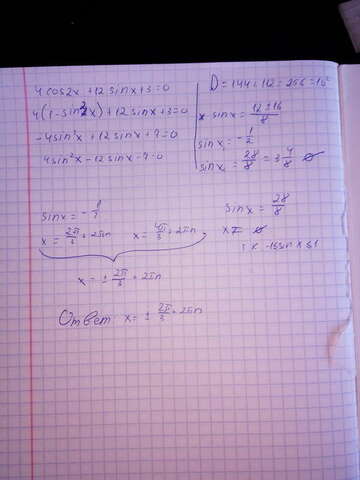 4cos2x+12sinx+3=0
4(1-sin²x)+12sinx+3=0
-4sin²x+12sinx+7=0
4sin²x-12sinx-7=0
D=144+112=256=16²
sinx=(12±16)/8
sinx=-1/2
sinx=28/8=3 4/8 ∅
sinx=-1/2
x=2π/3+2πn x=4π/3+2πn
x=±2π/3+2πn
sinx=28/8
x= ∅
-1≤sinx≤1
Ответ: x=±2π/3+2πn